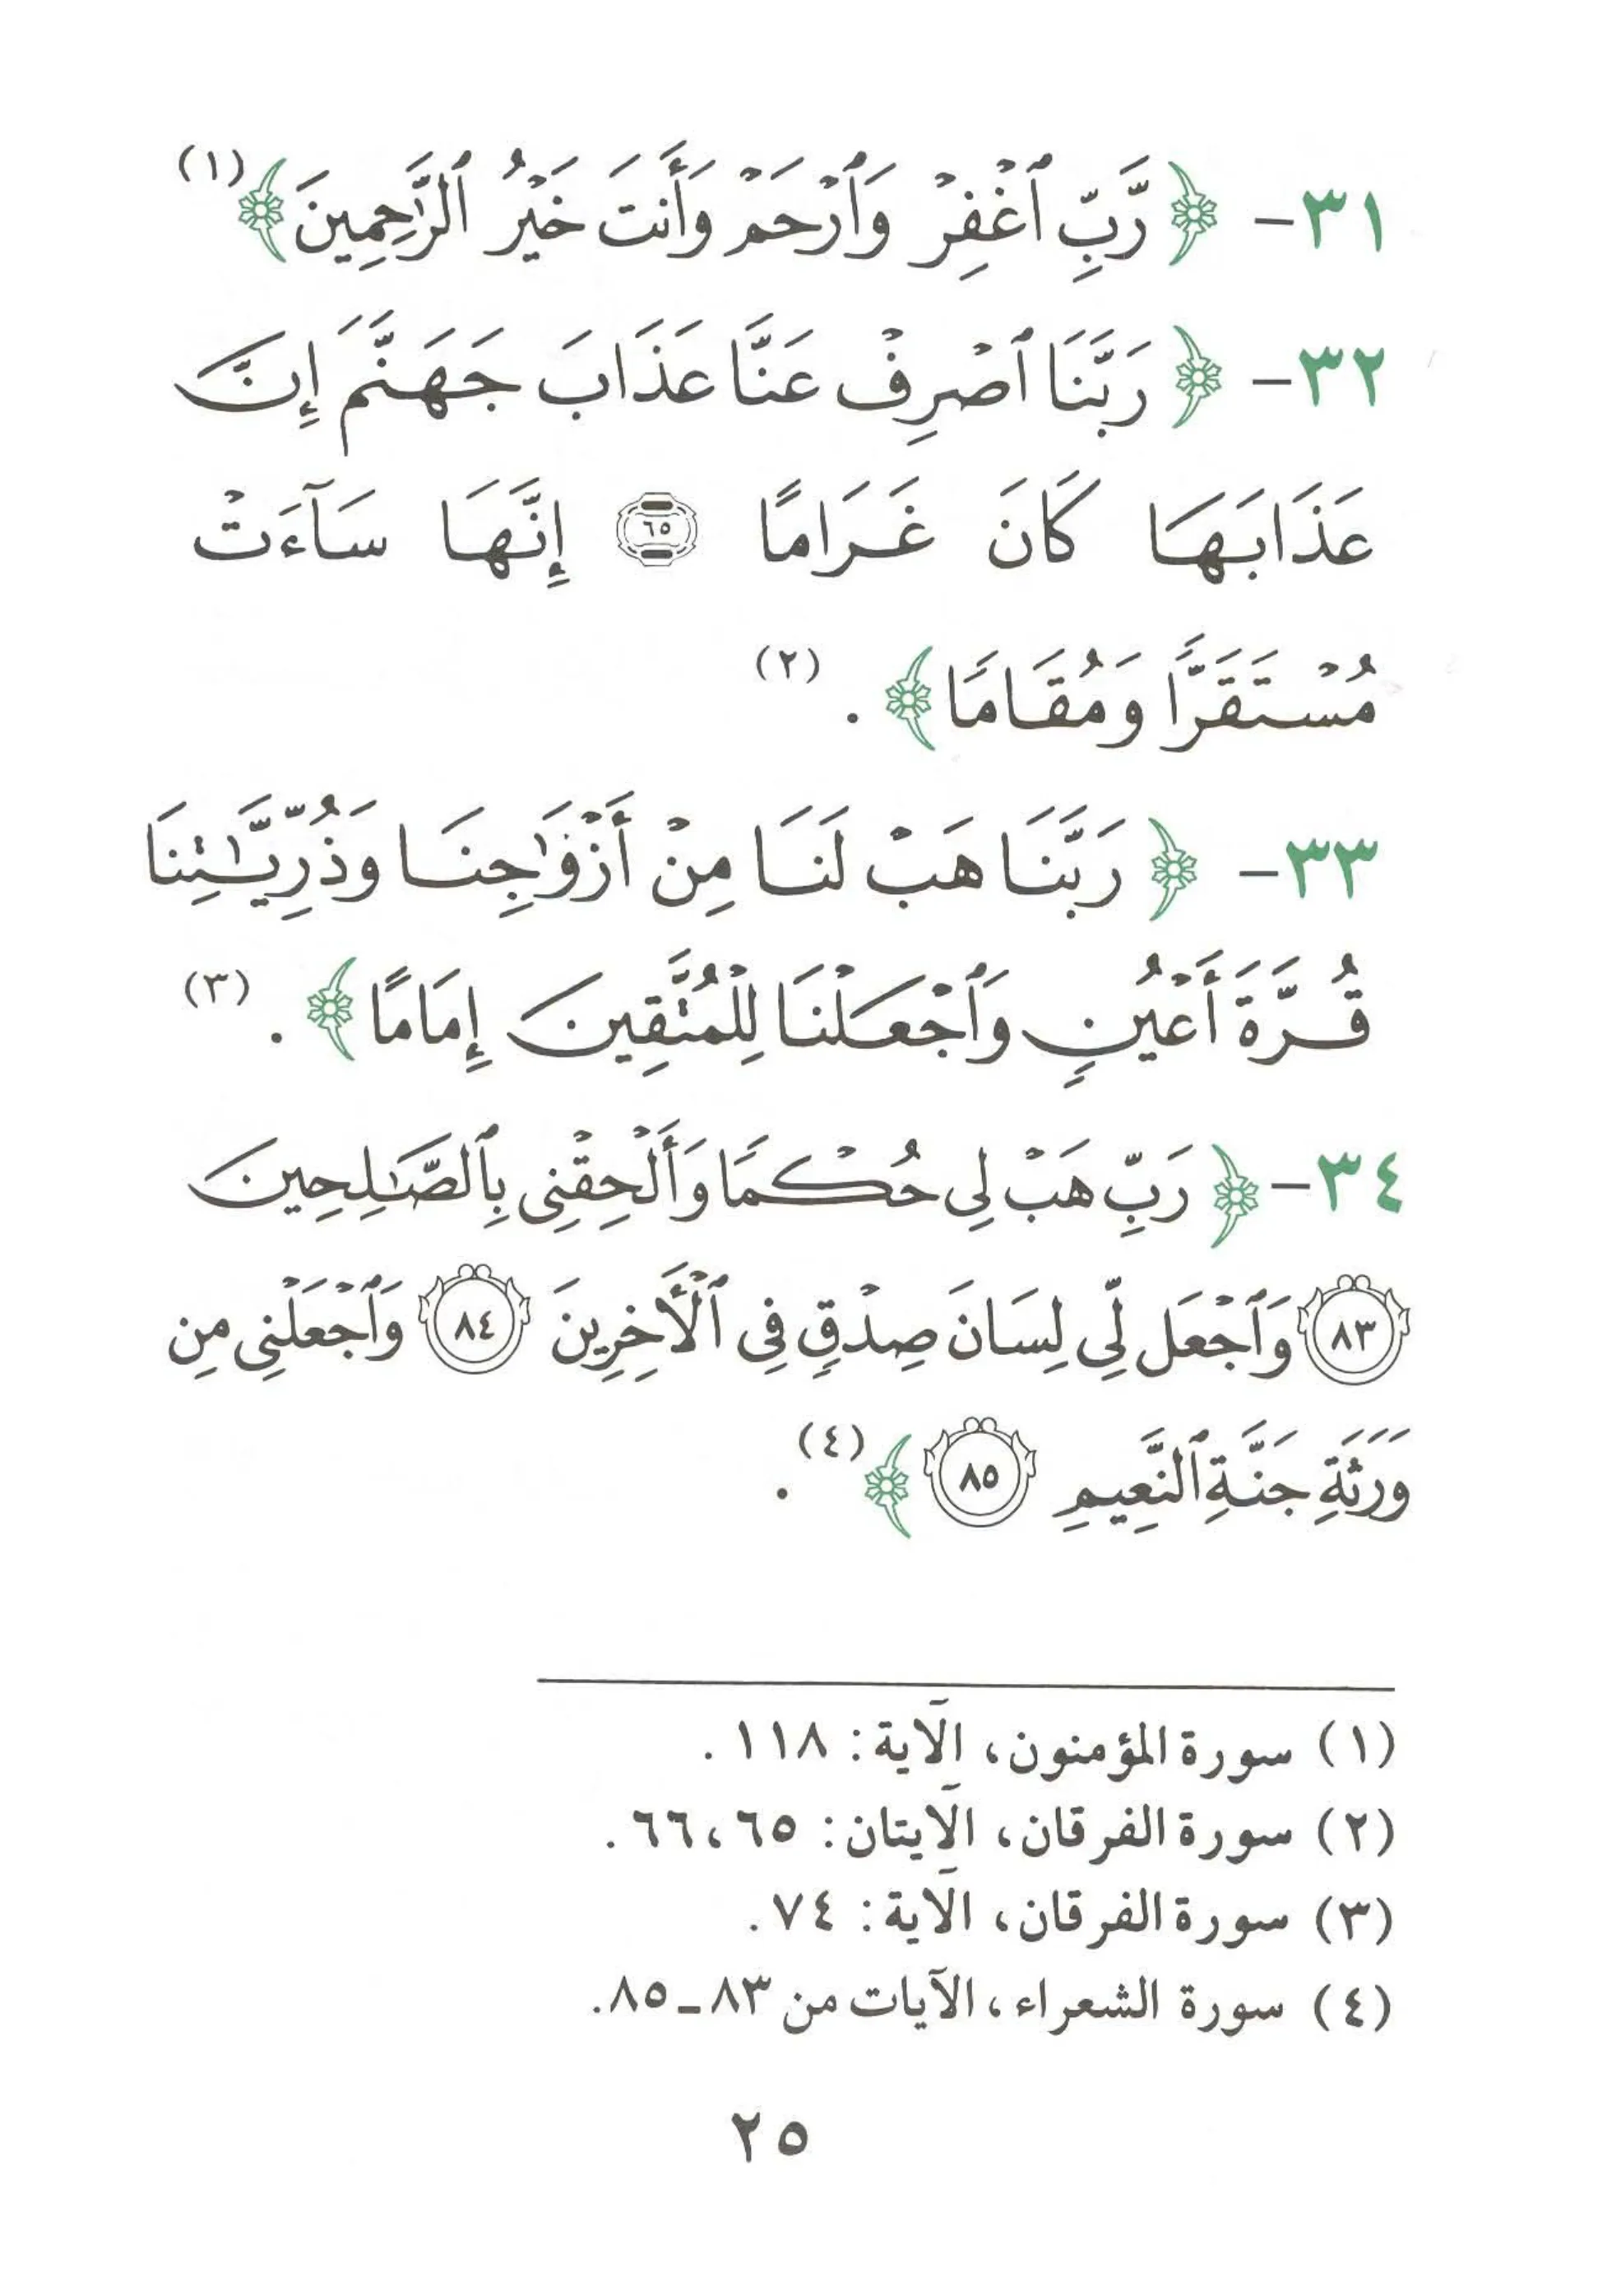 ٣١- ﴿ رَّبِّ ٱغْفِرْ وَٱرْحَمْ وَأَنتَ خَيْرُ ٱلرَّٰحِمِينَ﴾(١)
٣٢- ﴿ رَبَّنَا ٱصْرِفْ عَنَّا عَذَابَ جَهَنَّمَ إِنَّ
عَذَابَهَا كَانَ غَرَامًا ٦٥ إِنَّهَا سَآءَتْ
مُسْتَقَرًّا وَمُقَامًا﴾ . (٢)
٣٣- ﴿ رَبَّنَا هَبْ لَنَا مِنْ أَزْوَٰجِنَا وَذُرِّيَّـٰتِنَا
قُرَّةَ أَعْيُنٍ وَٱجْعَلْنَا لِلْمُتَّقِينَ إِمَامًا﴾ . (٣)
٣٤-﴿ رَبِّ هَبْ لِى حُكْمًا وَأَلْحِقْنِى بِٱلصَّـٰلِحِينَ
٨٣ وَٱجْعَل لِّى لِسَانَ صِدْقٍ فِى ٱلْأَخِرِينَ ٨٤ وَٱجْعَلْنِى مِن
وَرَثَةِ جَنَّةِ ٱلنَّعِيمِ ٨٥ ﴾(٤) .
(١) سورة المؤمنون، الآية: ١١٨ .
(٢) سورة الفرقان، الآيتان: ٦٥، ٦٦ .
(٣) سورة الفرقان، الآية: ٧٤ .
(٤) سورة الشعراء، الآيات من ٨٣ـ٨٥.
٢٥